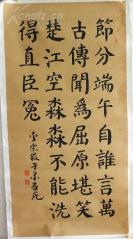 節分端午自誰言萬
古傳聞為屈原堪笑
楚江空淼淼不能洗
得直臣冤